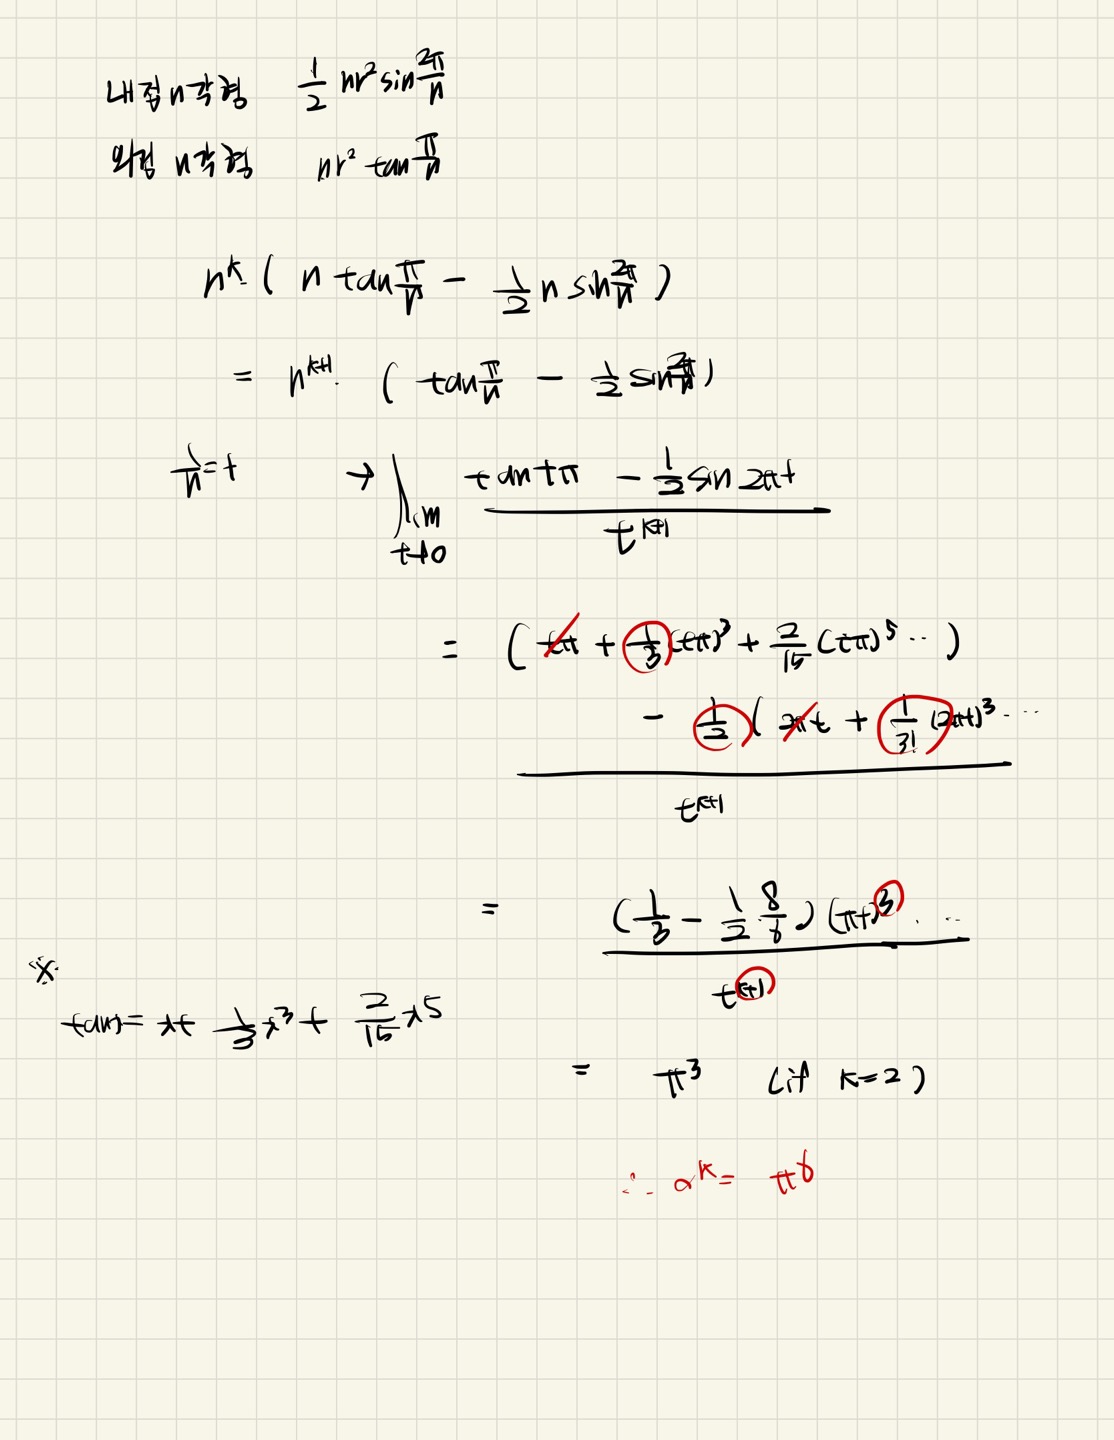 내접 n각형 1/2 nr² sin 2π/n
외접 n각형 nr² tan π/n
n^k ( n tan π/n - 1/2 n sin 2π/n )
= n^(k+1) · ( tan π/n - 1/2 sin 2π/n )
1/n = t → lim t→0 (tan tπ - 1/2 sin 2πt) / t^(k+1)
= ( tπ + 1/3 (tπ)³ + 2/15 (tπ)⁵ ··· )
- 1/2 ( 2πt + 1/3! (2πt)³ ···
t^(k+1)
= (1/3 - 1/2 · 8/6) (πt)³ ··· / t^(k+1)
※
tanx = x + 1/3 x³ + 2/15 x⁵
= π³ (if k=2)
∴ α^k = π⁶